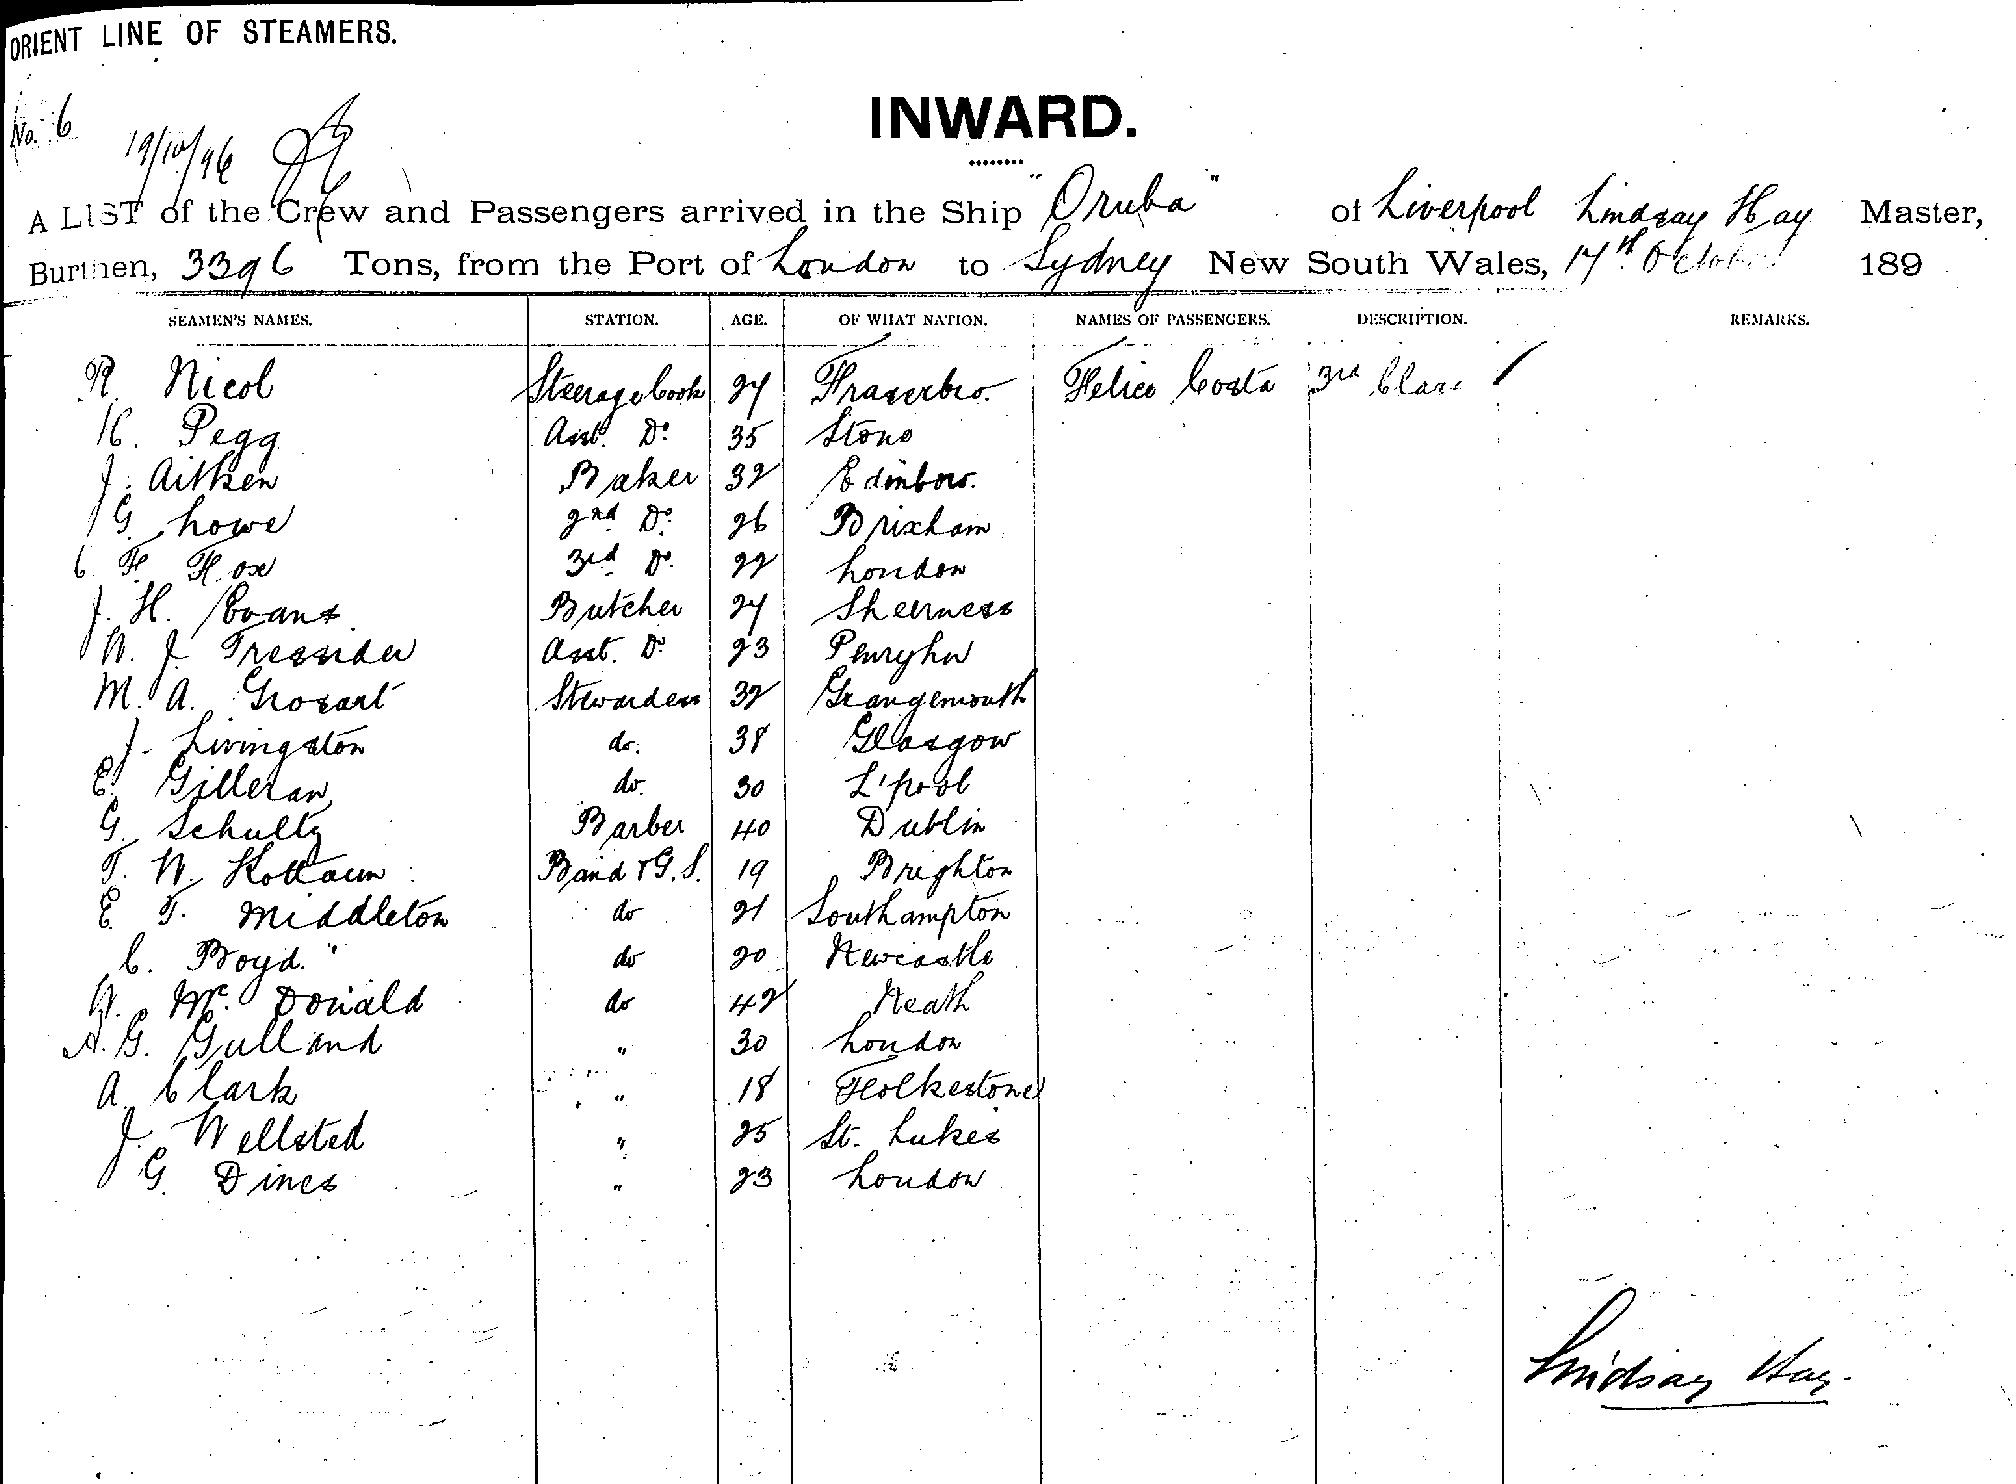 ORIENT LINE OF STEAMERS.
No. 6
19/10/96
INWARD.
A LIST of the Crew and Passengers arrived in the Ship "Oruba" of Liverpool Lindsay Hay Master,
Burthen, 3396 Tons, from the Port of London to Sydney New South Wales, 17th October 189
SEAMEN'S NAMES. STATION. AGE. OF WHAT NATION. NAMES OF PASSENGERS. DESCRIPTION. REMARKS.
R. Nicol Steerage Cook 27 Fraserbro. Felice Costa 3rd Class /
H. Pegg Asst. Do. 35 Stone
J. Aitken Baker 32 Edinboro.
G. Lowe 2nd Do. 26 Brixham
C. F. Fox 3rd Do. 22 London
J. H. Evans Butcher 27 Sheerness
W. J. Tressider Asst. Do. 23 Penryhn
M. A. Grosart Stewardess 32 Grangemouth
J. Livingston do. 38 Glasgow
E. Gilleran do. 30 L'pool
G. Schultz Barber 40 Dublin
T. W. Kottaun Band & G.S. 19 Brighton
E. T. Middleton do 21 Southampton
C. Boyd. do 20 Newcastle
W. Mc. Donald do 42 Neath
A. G. Gulland " 30 London
A. Clark " 18 Folkestone
J. Wellsted " 25 St. Lukes
G. Dines " 23 London
Lindsay Hay.